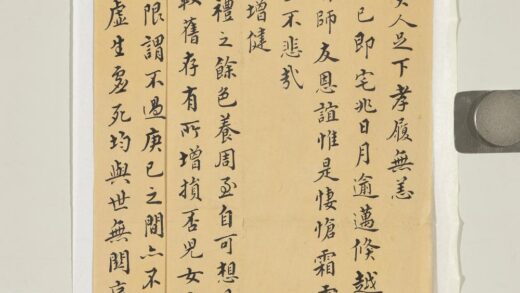 人足下孝履無恙
已即宅兆日月逾邁倏越
師友恩誼惟是悽愴霜
不悲哉
增健
禮之餘色養周至自可想
較舊存有所增損否兒女
限謂不過庚已之間亦不
虛生虛死均與世無關